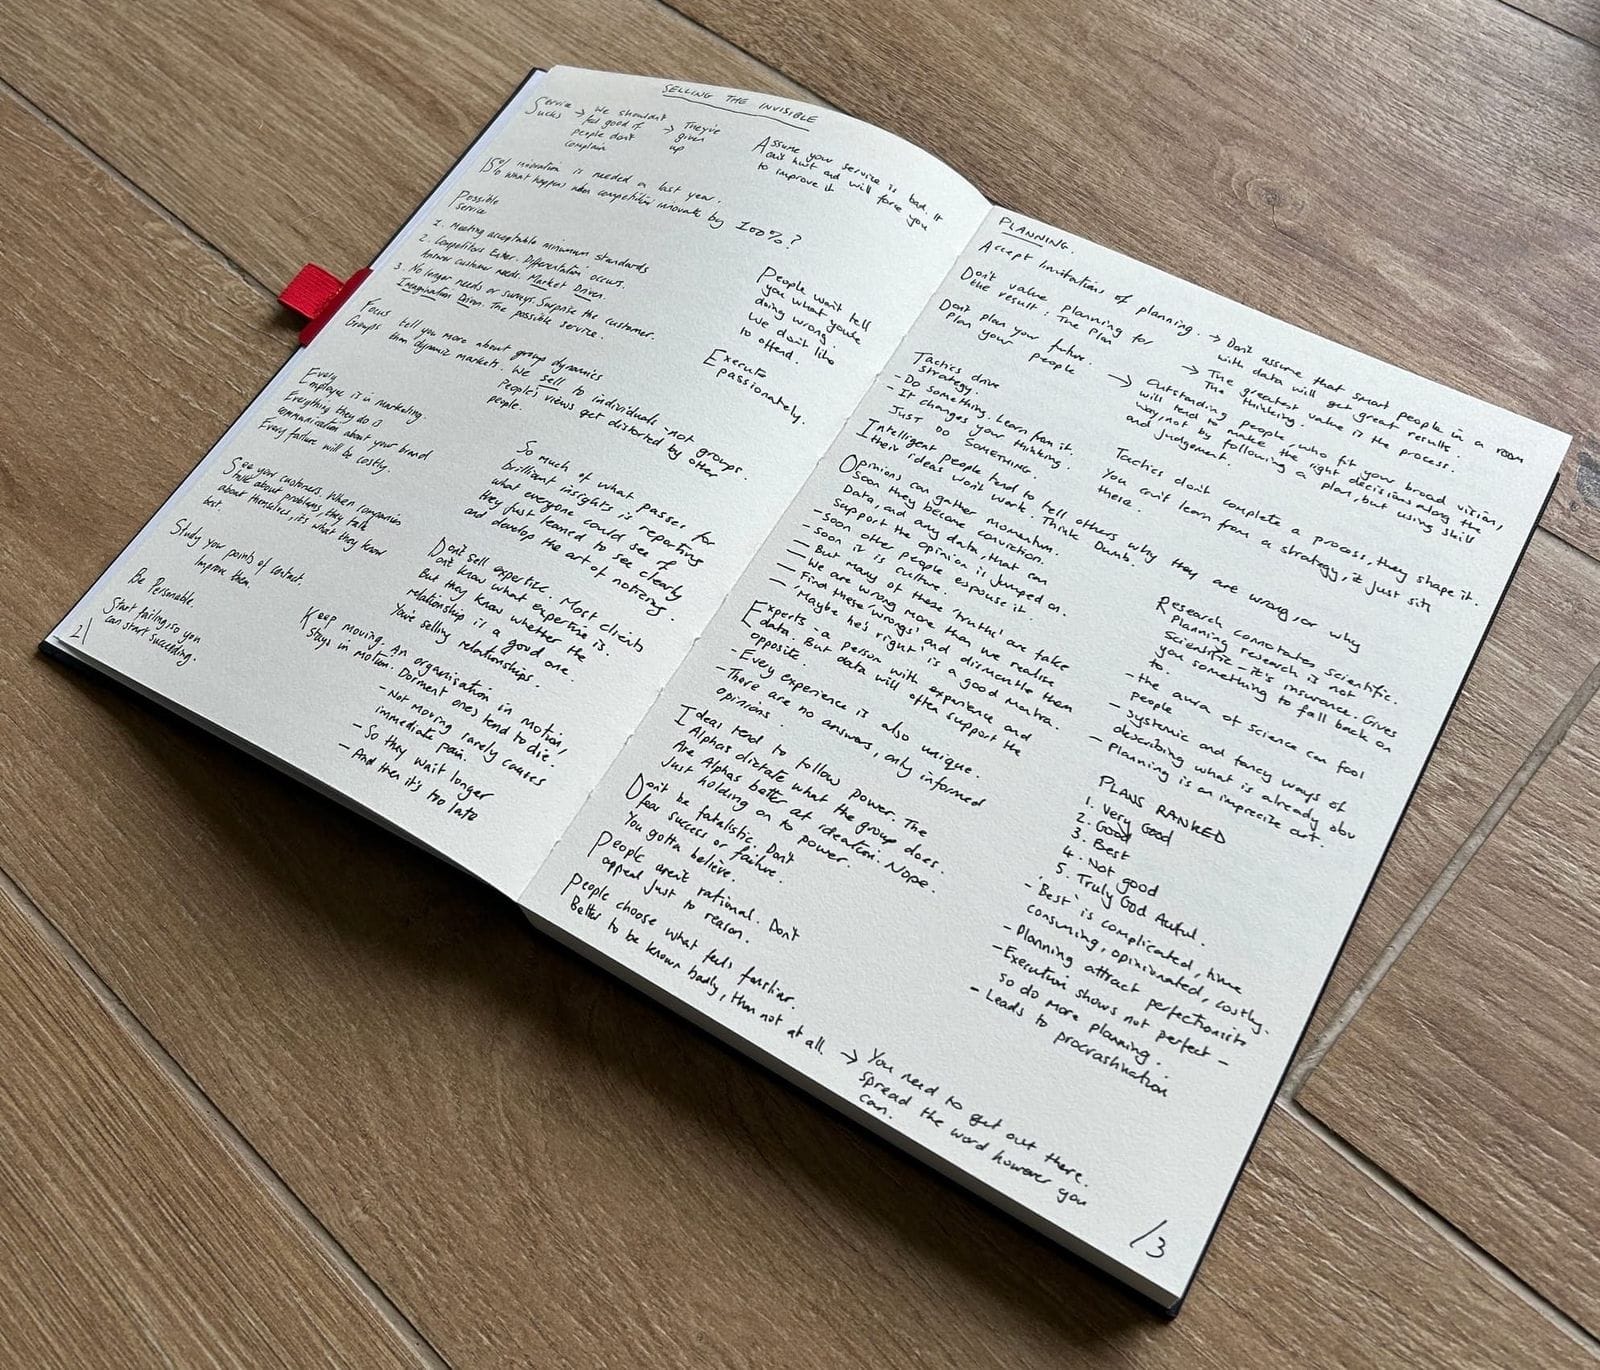 SELLING THE INVISIBLE
Service
Sucks
→ We shouldn't
feel good if
people don't
complain
→ They've
given
up
Assume your service is bad. It
can't hurt and will force you
to improve it
15% innovation is needed on last year.
% what happens when competition innovate by 100%?
Possible
service
1. Meeting acceptable minimum standards
2. Competitors Enter. Differentiation occurs.
Answer customer needs. Market Driven.
3. No longer needs or surveys. Surprise the customer.
Imagination Driven. The possible service.
People won't tell
you what you're
doing wrong.
We don't like
to offend.
Focus
Groups
tell you more about group dynamics
than dynamic markets. We sell to individuals - not groups.
People's views get distorted by other
people.
Execute
passionately.
Every
Employee is in marketing.
Everything they do is
communication about your brand
Every failure will be costly.
So much of what passes for
brilliant insights is reporting
what everyone could see if
they just learned to see clearly
and develop the art of noticing.
See your customers. When companies
talk about problems, they talk
about themselves, it's what they know
best.
Don't sell expertise. Most clients
don't know what expertise is.
But they know whether the
relationship is a good one.
You're selling relationships.
Study your points of contact.
Improve them.
Be Personable.
Start failing, so you
can start succeeding.
Keep moving. An organisation in motion,
stays in motion. Dorment ones tend to die.
- Not moving rarely causes
immediate pain.
- So they wait longer
- And then it's too late
2/
PLANNING.
Accept limitations of planning.
→ Don't assume that smart people in a room
with data will get great results.
Don't value planning for
the result: The Plan
→ The greatest value is the process.
The thinking.
Don't plan your future.
Plan your people
→ Outstanding people, who fit your broad vision,
will tend to make the right decisions along the
way, not by following a plan, but using skill
and judgement.
Tactics drive
strategy.
- Do Something. Learn from it.
- It changes your thinking.
JUST DO SOMETHING
Tactics don't complete a process, they shape it.
You can't learn from a strategy, it just sits
there.
Intelligent People tend to tell others why they are wrong, or why
their ideas won't work. Think Dumb.
Opinions can gather momentum.
Soon they become conviction.
Data, and any data, that can
support the opinion is jumped on.
- Soon other people espouse it.
Soon it is culture.
- But many of these 'truths' are fake
- We are wrong more than we realise
- Find these 'wrongs' and dismantle them
'Maybe he's right' is a good mantra.
Experts - a person with experience and
data. But data will often support the
opposite.
- Every experience is also unique.
- There are no answers, only informed
opinions.
Ideas tend to follow power. The
Alphas dictate what the group does.
Are Alphas better at ideation. Nope.
Just holding on to power.
Don't be fatalistic. Don't
fear success or failure.
You gotta believe.
People aren't rational. Don't
appeal just to reason.
People choose what feels familiar.
Better to be known badly, than not at all.
→ You need to get out there.
Spread the word however you
can.
Research connotates scientific.
Planning research is not
scientific - it's insurance. Gives
you something to fall back on
to.
- the aura of science can fool
people
- Systemic and fancy ways of
describing what is already obv
- Planning is an imprecise art.
PLANS RANKED
1. Very Good
2. Good
3. Best
4. Not good
5. Truly God Awful.
- 'Best' is complicated, time
consuming, opinionated, costly.
- Planning attract perfectionists
- Execution shows not perfect -
so do more planning.
- Leads to procrastination
/3